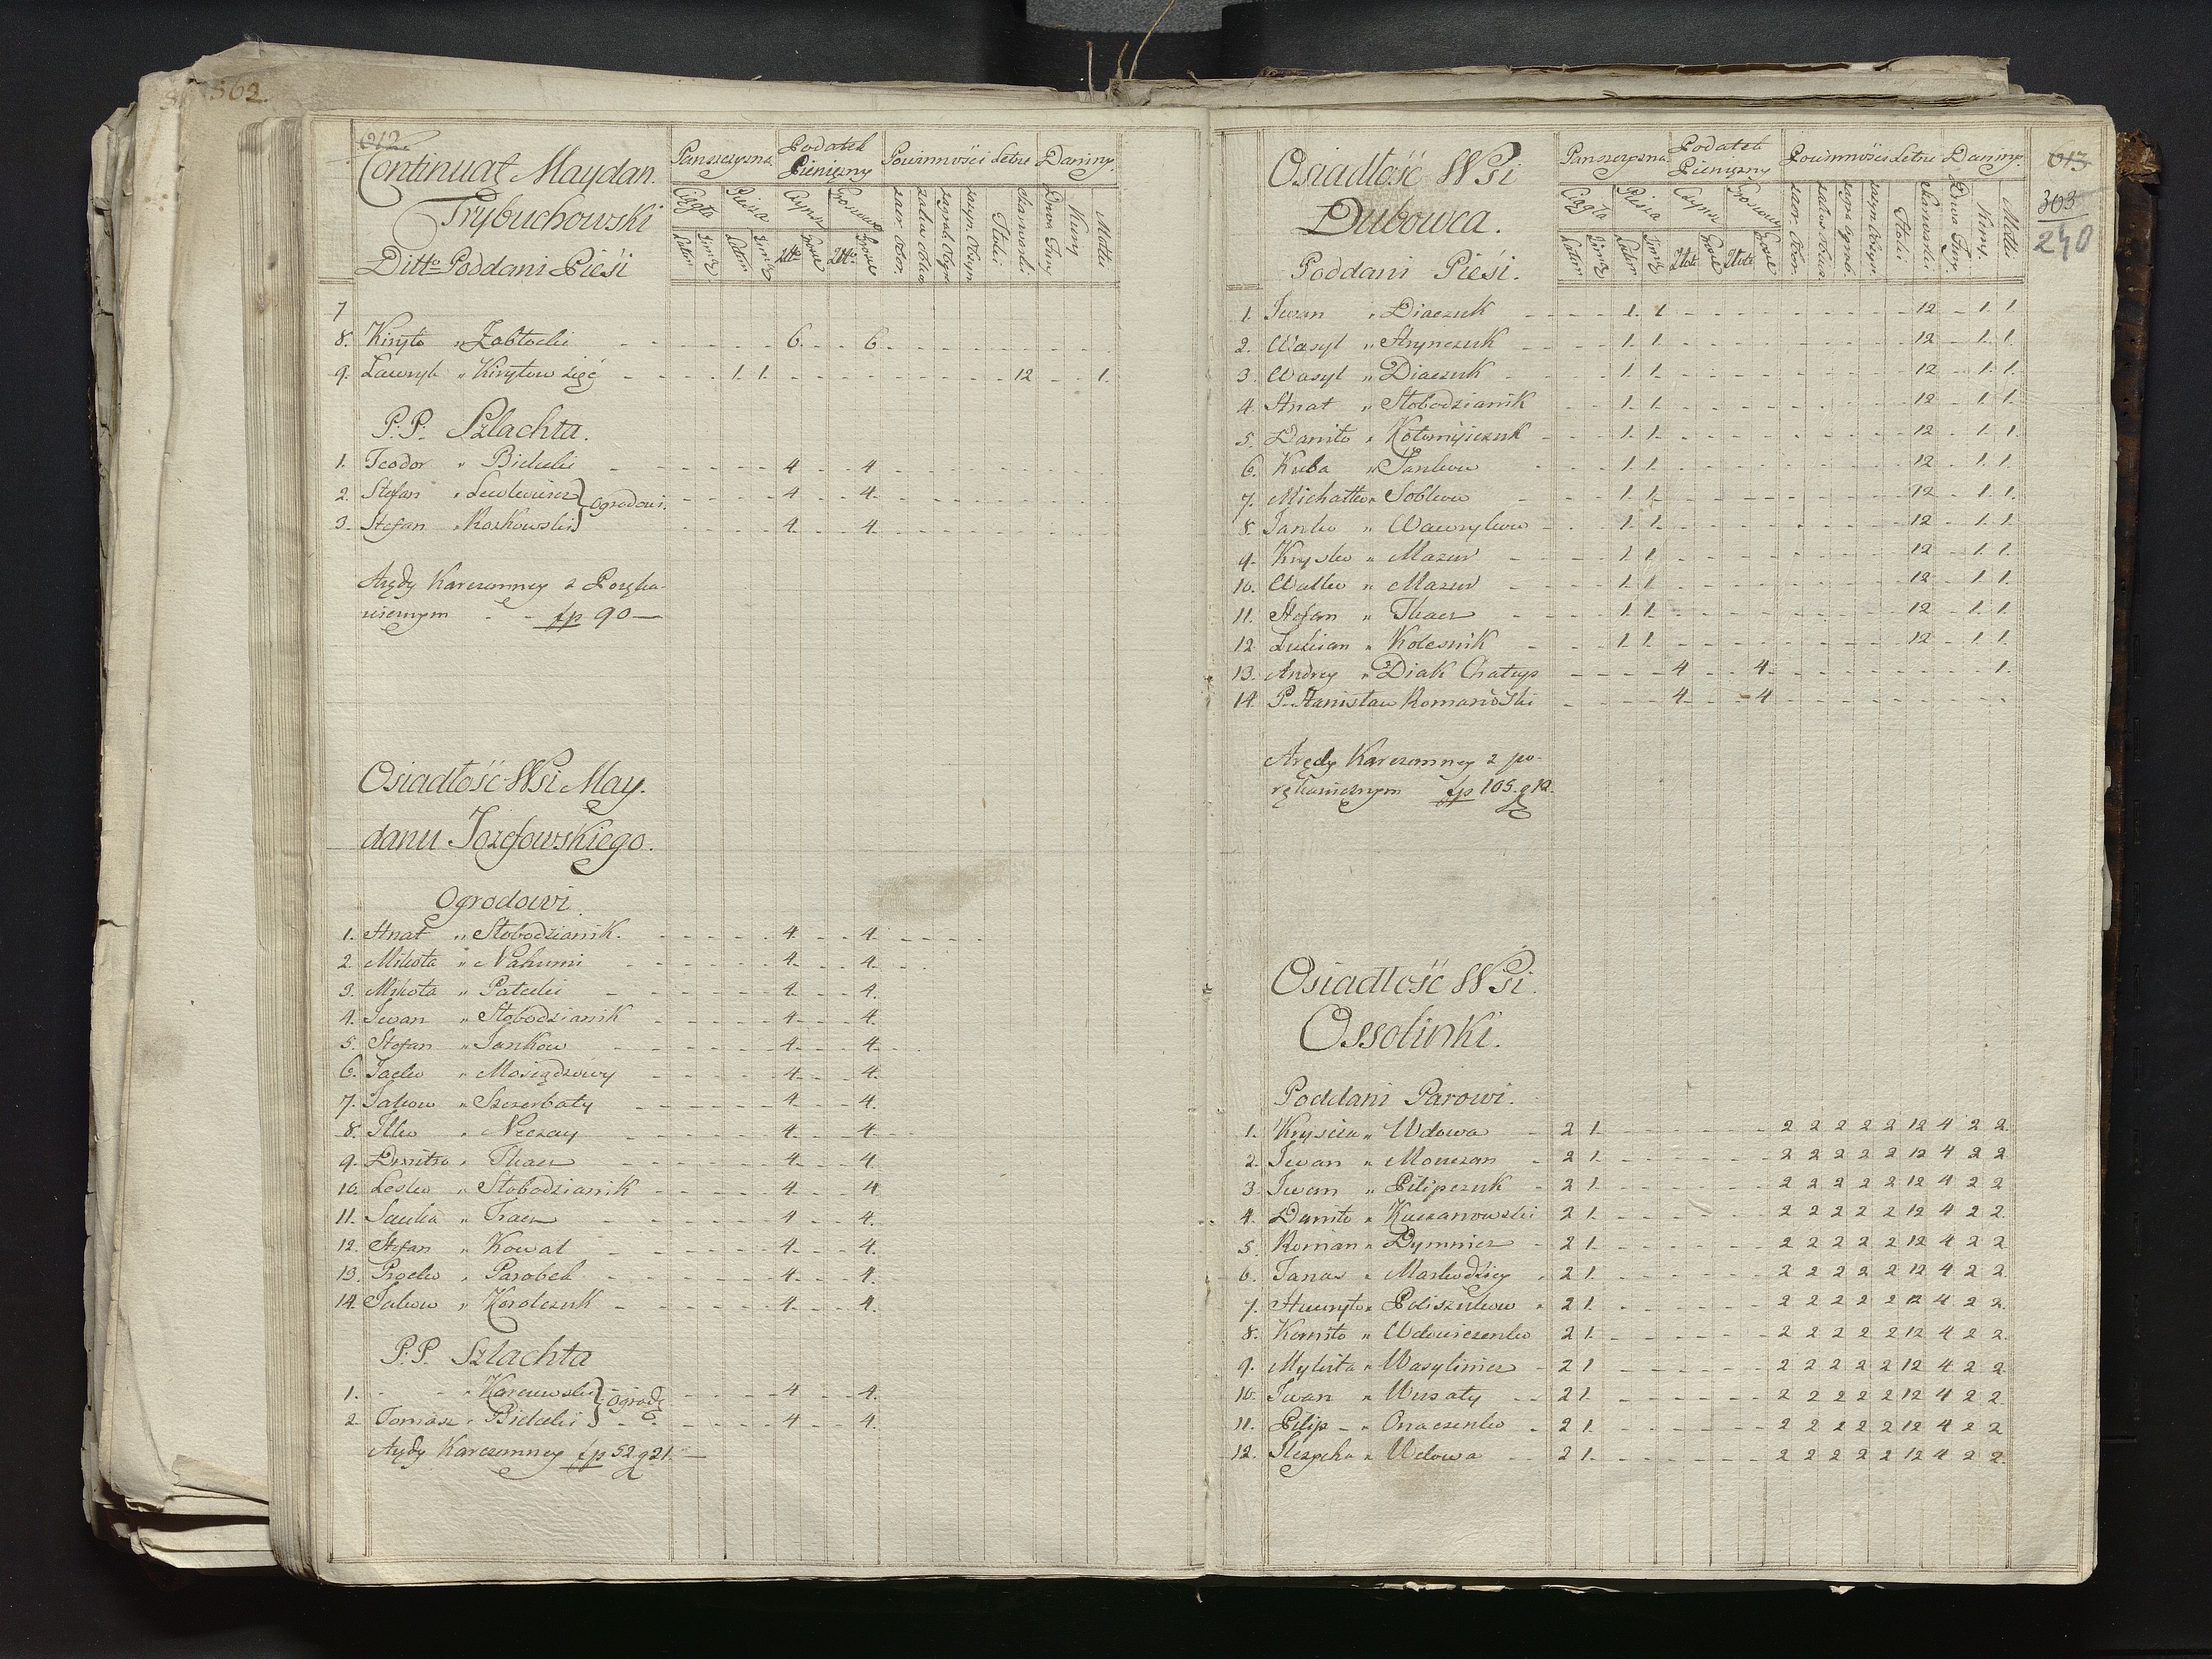 562
612.
Continuat Maydan.
Trybuchowski
Ditto Poddani Pieśi
Panszczyzna Podatek Pieniężny Powinności Letnie Daniny.
Ciągła Piesza Czynsz
Latem Zimą Latem Zimą Kury Motki
7
8. Kiryło „ Zabłocki - - - - - 6. - - 6. - - - - - - - - -
9. Ławryk „ Kiryłow zięć - - - - 1. 1. - - - - - - - - - - 12 - - 1.
P:P: Szlachta.
1. Teodor „ Bielecki - - - - - - 4 - - 4 - - - - - - - - -
2. Stefan „ Lewkowicz } Ogrodowi. - - - - 4 - - 4 - - - - - - - - -
3. Stefan „ Koszkowski - - - - 4 - - 4 - - - - - - - - -
Arędy Karczemney z Poręka-
wicznym - - fp 90 —
Osiadłość Wsi May.
danu Jozefowskiego.
Ogrodowi.
1. Hnat „ Słobodzianik. - - - - - 4 - - 4. - - - -
2. Mikoła „ Nahumi - - - - - - 4 - - 4 - -
3. Mikoła „ Patecki - - - - - - 4 - - 4.
4. Iwan „ Słobodzianik - - - - - 4 - - 4.
5. Stefan „ Jankow - - - - - - 4 - - 4 - -
6. Jacko „ Mosiądzowy - - - - - 4 - - 4.
7. Jakow „ Szczerbaty - - - - - - 4 - - 4.
8. Ilko „ Neczay - - - - - - 4 - - 4 - -
9. Dmitro „ Tkacz - - - - - - 4 - - 4.
10. Lesko „ Słobodzianik - - - - - 4 - - 4
11. Sawka „ Tracz - - - - - - 4 - - 4.
12. Stefan „ Kowal - - - - - - 4 - - 4.
13. Procko „ Parobek - - - - - - 4 - - 4.
14. Jakow „ Korolczuk - - - - - - 4 - - 4.
P:P. Szlachta
1. - - „ Karczewski } Ogrod: - - - - 4 - - 4.
2. Tomasz „ Bielecki - - - - 4 - - 4.
Arędy Karczemney fp 52 g 21. —
Osiadłość Wsi
Dubowca.
Poddani Pieśi.
Panszczyzna Podatek Pieniężny Powinności Letnie Daniny.
Ciągła Piesza Czynsz
Latem Zimą Latem Zimą Kury Motki
613
303
240
1. Iwan „ Diaczuk - - - - 1. 1 - - - - - - - - - 12 - 1. 1.
2. Wasyl „ Hrynczuk - - - - 1. 1. - - - - - - - - - 12 - 1. 1.
3. Wasyl „ Diaczuk - - - - 1. 1. - - - - - - - - - 12 - 1. 1.
4. Hnat „ Słobodzianik - - 1. 1. - - - - - - - - - 12 - 1. 1.
5. Daniło „ Kołomijczuk - - - 1. 1. - - - - - - - - - 12 - 1. 1.
6. Kuba „ Jankow - - - 1. 1. - - - - - - - - - 12 - 1. 1.
7. Michałko „ Sobkow - - - 1. 1. - - - - - - - - - 12 - 1. 1.
8. Janko „ Wawrykow - - - 1. 1. - - - - - - - - - 12 - 1. 1.
9. Krysko „ Mazur - - - 1. 1. - - - - - - - - - 12 - 1. 1.
10. Walko „ Mazur - - - 1. 1. - - - - - - - - - 12 - 1. 1.
11. Stefan „ Tkacz - - - 1. 1. - - - - - - - - - 12 - 1. 1.
12. Łukian „ Kolesnik - - - 1. 1. - - - - - - - - - 12 - 1. 1.
13. Andrey „ Diak Chałup - - - - 4 - - 4 - - - - - - - - 1.
14. P. Stanisław Romanowski - - - - 4 - - 4 - - - - - - - - -
Arędy Karczemney z po-
rękawicznym fp 105. g 12.
Osiadłość Wsi.
Ossolinki.
Poddani Parowi.
1. Kryscicha „ Wdowa - 2 1. - - - - - - 2 2 2 2 2 12 4 2 2
2. Iwan „ Mouczan - 2 1. - - - - - - 2 2 2 2 2 12 4 2 2
3. Iwan „ Pilipczuk - 2 1. - - - - - - 2 2 2 2 2 12 4 2 2
4. Daniło „ Kuczanowski 2 1. - - - - - - 2 2 2 2 2 12 4 2 2.
5. Roman „ Dymnicz - 2 1. - - - - - - 2 2 2 2 2 12 4 2 2
6. Tanas „ - 2 1. - - - - - - 2 2 2 2 2 12 4 2 2
7. Hawryło „ Poliszukow - 2 1. - - - - - - 2 2 2 2 2 12 4 2 2.
8. Korniło „ Wdowiczenko 2 1. - - - - - - 2 2 2 2 2 12 4 2 2.
9. Mykita „ Wasylinicz - 2 1 - - - - - - 2 2 2 2 2 12 4 2 2
10. Iwan „ Wusaty - - 2 1. - - - - - - 2 2 2 2 2 12 4 2 2.
11. Pilip - „ Onaczenko - 2 1. - - - - - - 2 2 2 2 2 12 4 2 2
12. „ Wdowa - - 2 1. - - - - - - 2 2 2 2 2 12 4 2 2.